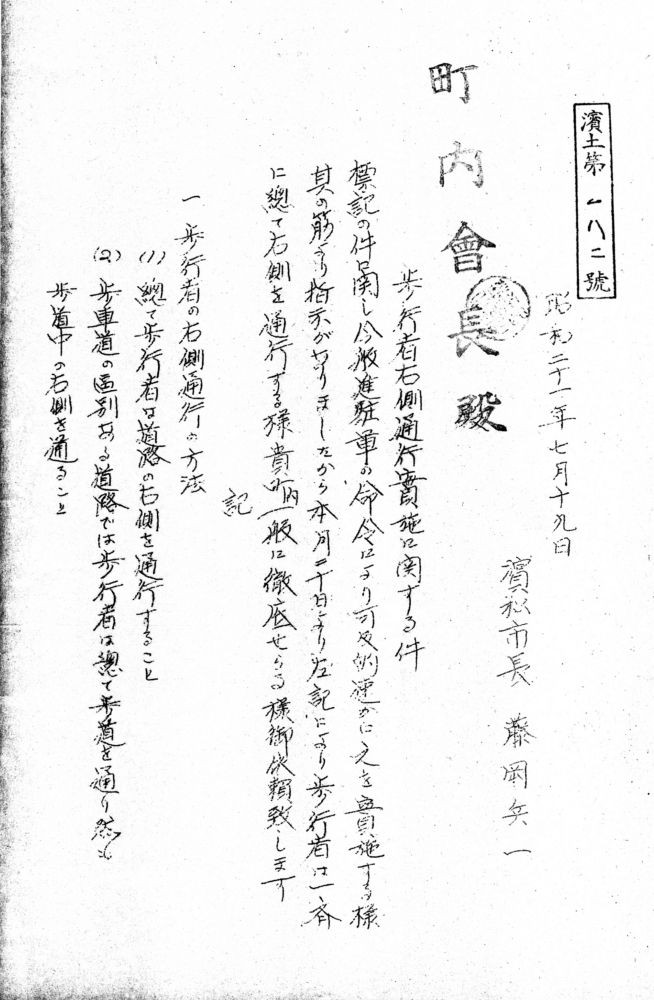 濱土第一八二號
昭和二十一年七月十九日
濱松市長 藤岡兵一
町内會長殿
歩行者右側通行實施に関する件
標記の件に関し今般進駐軍の命令により可及的速かに之を實施する様
其の筋より指示がありましたから本月二十日より左記により歩行者は一斉
に總て右側を通行する様貴町内一般に徹底せらる様御依頼致します
記
一 歩行者の右側通行の方法
(1) 總て歩行者は道路の右側を通行すること
(2) 歩車道の區別ある道路では歩行者は總て歩道を通り然も
歩道中の右側を通ること